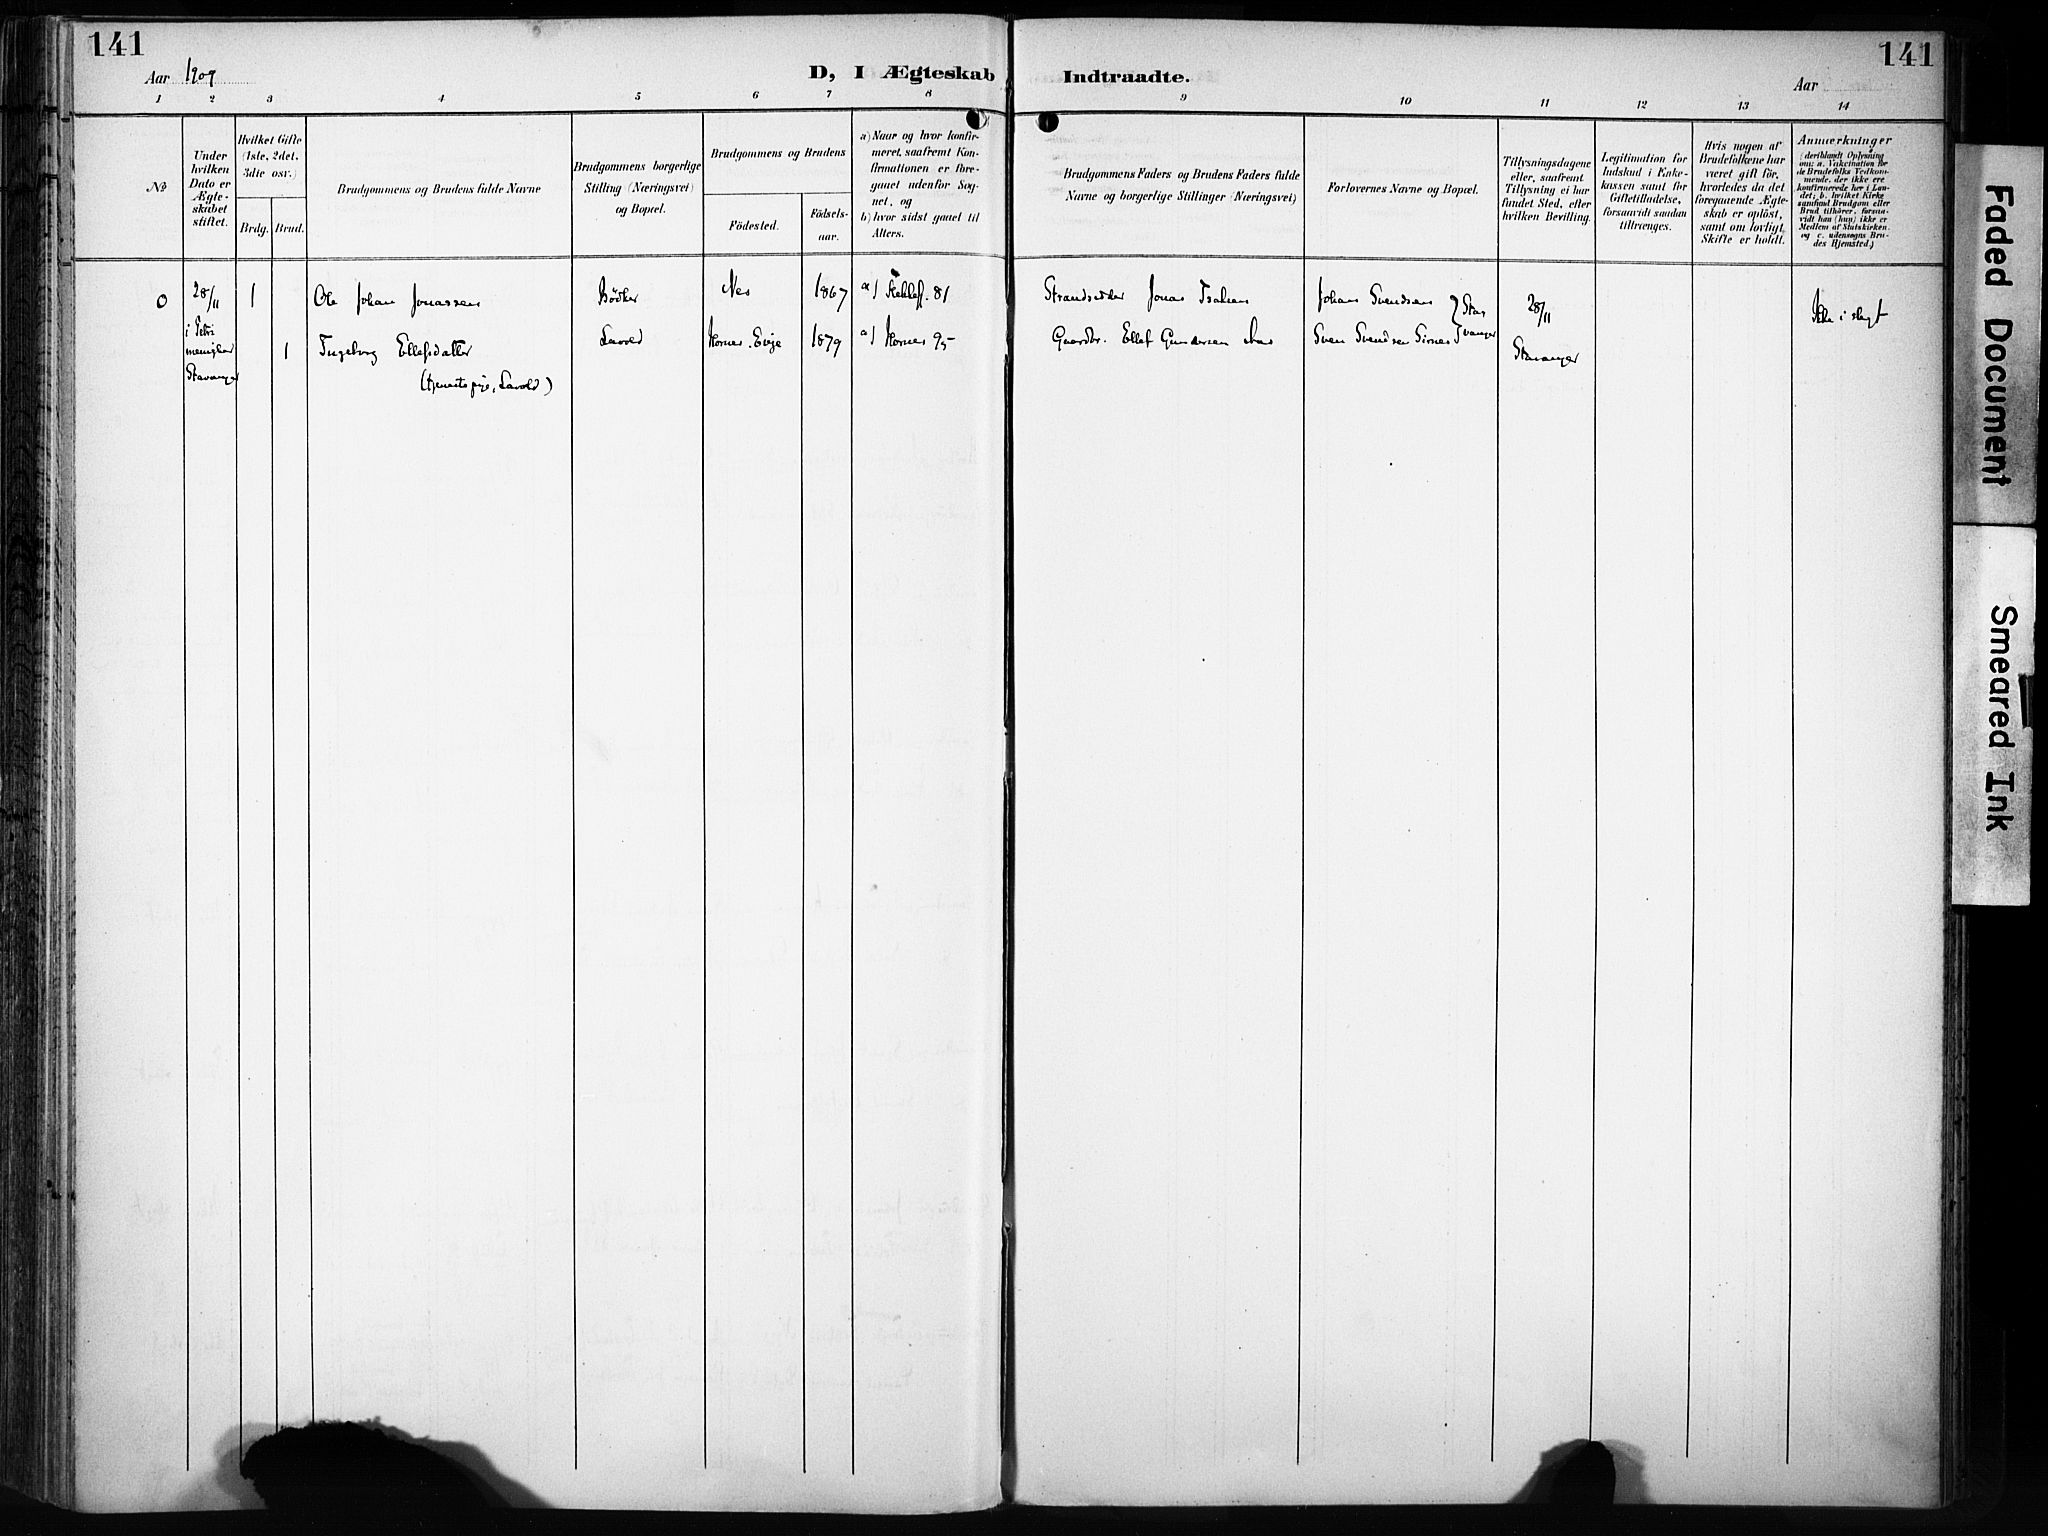 141
141
Aar 1909
D, I Ægteskab Indtraadte.
Aar
1 2 3 4 5 6 7 8 9 10 11 12 13 14
No
Under
hvilken
Dato er
Ægte-
skabet
stiftet.
Hvilket Gifte
(1ste, 2det,
3die osv.)
Brdg. Brud.
Brudgommens og Brudens fulde Navne
Brudgommens borgerlige
Stilling (Næringsvei)
og Bopæl.
Brudgommens og Brudens
Födested.
Födsels-
aar.
a) Naar og hvor konfir-
meret, saafremt Kon-
firmationen er fore-
gaaet udenför Sog-
net, og
b) hvor sidst gaaet til
Alters.
Brudgommens Faders og Brudens Faders fulde
Navne og borgerlige Stillinger (Næringsvei)
Forlovernes Navne og Bopæl.
Tillysningsdagene
eller, saafremt
Tillysning ei har
fundet Sted, efter
hvilken Bevilling.
Legitimation for
Indskud i Enke-
kassen samt for
Giftetilladelse,
forsaavidt saadan
tiltrænges.
Hvis nogen af
Brudefolkene har
været gift för,
hvorledes da det
foregaaende Ægte-
skab er oplöst,
samt om lovligt
Skifte er holdt.
Anmærkninger
(deriblandt Oplysning
om: a. Vakcination for
de Brudefolks Vedkom-
mende, der ikke ere
konfirmerede her i Lan-
det; b. hvilket Kirke-
samfund Brudgom eller
Brud tilhörer, forsaa-
vidt han (hun) ikke er
Medlem af Statskirken.
og c. udensogns Bru-
des Hjemsted.)
0 28/11 1 Ole Johan Jonassen Bödker Nes 1867 a) 81 Strandsidder Jonas Johans Svendsen Stav 28/11 Ikke i slegt
i Petri
menighed 1 Ingeborg Ellefsdatter Lavold Hornes. Evje 1879 a) Hornes 95 Gaardbr. Ellef Gundersen Sven Svendsen anger Stavanger
Stavanger
(tjenestepige, Lavold)
Faded Document
Smeared Ink